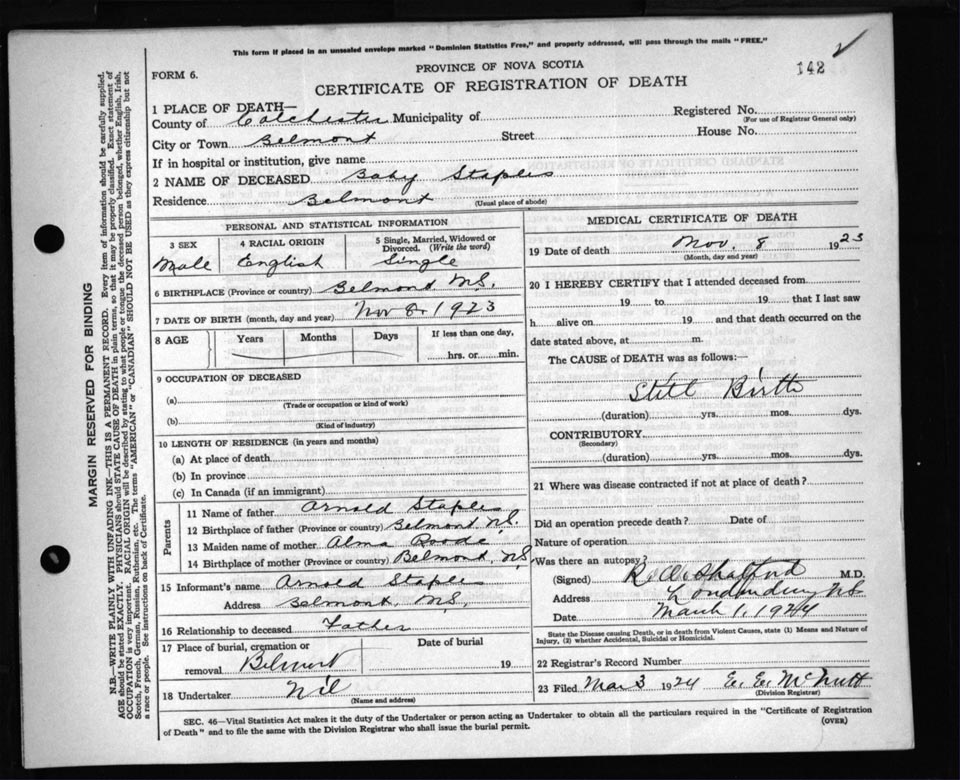 This form if placed in an unsealed envelope marked "Dominion Statistics Free," and property addressed, will pass through the mails "FREE."
142
PROVINCE OF NOVA SCOTIA
FORM 6.
CERTIFICATE OF REGISTRATION OF DEATH
1 PLACE OF DEATH—
County of Colchester Municipality of Registered No.
(For use of Registrar General only)
City or Town Belmont Street House No.
If in hospital or institution, give name
2 NAME OF DECEASED Baby Staples
Residence Belmont
(Usual place of abode)
PERSONAL AND STATISTICAL INFORMATION
3 SEX 4 RACIAL ORIGIN 5 Single, Married, Widowed or Divorced. (Write the word)
Male English Single
6 BIRTHPLACE (Province or country) Belmont N.S.
7 DATE OF BIRTH (month, day and year) Nov 8. 1923
8 AGE Years Months Days If less than one day,
hrs. or min.
9 OCCUPATION OF DECEASED
(a)
(Trade or occupation or kind of work)
(b)
(Kind of industry)
10 LENGTH OF RESIDENCE (in years and months)
(a) At place of death
(b) In province
(c) In Canada (if an immigrant)
Parents
11 Name of father Arnold Staples
12 Birthplace of father (Province or country) Belmont N.S.
13 Maiden name of mother Alma
14 Birthplace of mother (Province or country) Belmont, N.S
15 Informant's name Arnold Staples
Address Belmont, N.S.
16 Relationship to deceased Father
17 Place of burial, cremation or Date of burial
removal Belmont 19
18 Undertaker Nil
(Name and address)
MEDICAL CERTIFICATE OF DEATH
19 Date of death Nov. 8 1923
(Month, day and year)
20 I HEREBY CERTIFY that I attended deceased from
19 to 19 that I last saw
h alive on 19 and that death occurred on the
date stated above, at m.
The CAUSE of DEATH was as follows:—
Still Birth
(duration) yrs. mos. dys.
CONTRIBUTORY
(Secondary)
(duration) yrs. mos. dys.
21 Where was disease contracted if not at place of death?
Did an operation precede death? Date of
Nature of operation
Was there an autopsy?
(Signed) M.D.
Address Londonderry N.S
Date March 1, 1924
State the Disease causing Death, or in death from Violent Causes, state (1) Means and Nature of
Injury, (2) whether Accidental, Suicidal or Homicidal.
22 Registrar's Record Number
23 Filed Mar 3 1924 E. E. McNutt
(Division Registrar)
SEC. 46—Vital Statistics Act makes it the duty of the Undertaker or person acting as Undertaker to obtain all the particulars required in the "Certificate of Registration
of Death" and to file the same with the Division Registrar who shall issue the burial permit.
(OVER)
MARGIN RESERVED FOR BINDING
N.B.—WRITE PLAINLY WITH UNFADING INK—THIS IS A PERMANENT RECORD. Every item of information should be carefully supplied.
AGE should be stated EXACTLY. PHYSICIANS should STATE CAUSE OF DEATH in plain terms, so that it may be properly classified. Exact statement of
OCCUPATION is very important. RACIAL ORIGIN will be described by stating to what people or tongue the deceased person belonged, whether English, Irish,
Scotch, French, German, Russian, Ruthenian, etc. The terms "AMERICAN" or "CANADIAN" SHOULD NOT BE USED as they express citizenship but not
a race or people. See instructions on back of Certificate.